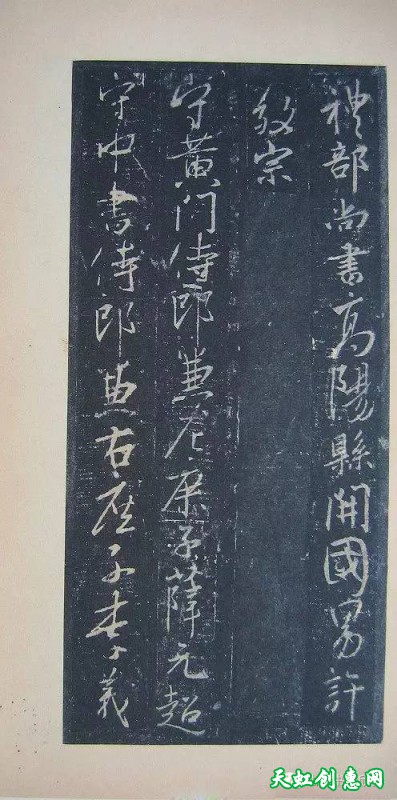 禮部尚書高陽縣開國男許
敬宗
守黃門侍郎兼左庶子薛元超
守中書侍郎兼右庶子李義
天虹创惠网